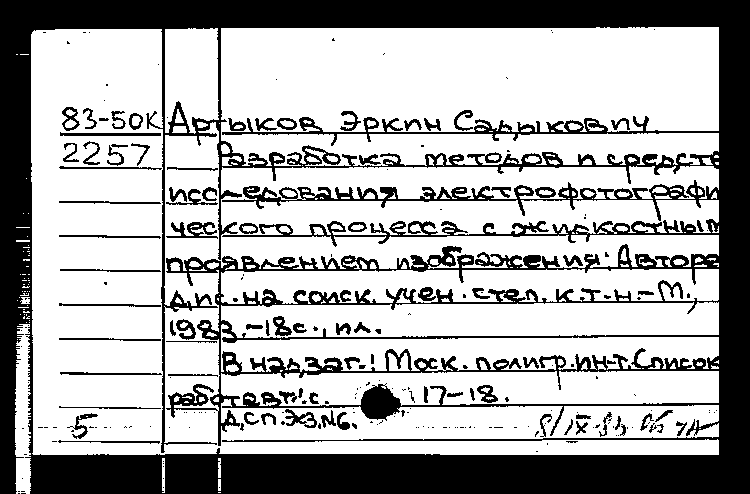 83-50К Артыков, Эркин Садыкович.
2257 Разработка методов и средств
исследования электрофотографи
ческого процесса с жидкостным
проявлением изображения: Авторе
дис. на соиск. учен. степ. к.т.н.-М.,
1983.-18с., ил.
В надзаг.: Моск. полигр.ин-т. Список
работ авт.: с. 17-18.
5 Д.СП.ЭЗ.№6.
8/IX-83